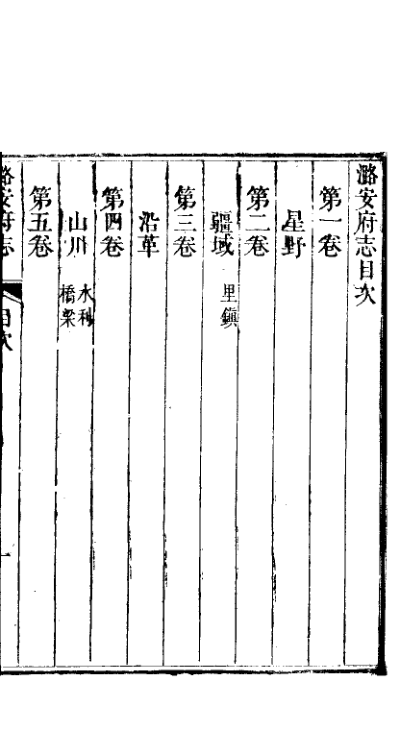 潞安府志目次
第一卷
星野
第二卷
疆域 里鎮
第三卷
沿革
第四卷
山川 水利 橋梁
第五卷
潞安府志 目次 一